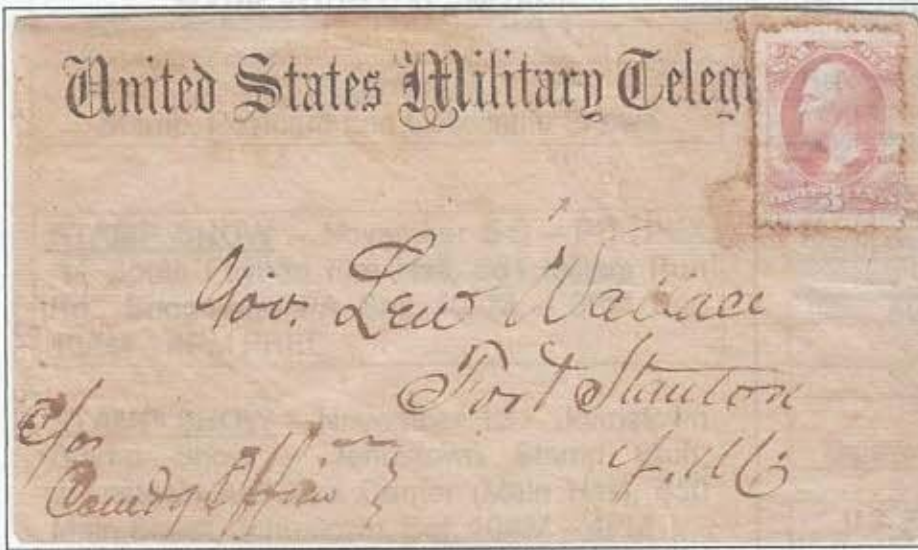 United States Military Telegr
Gov. Lew Wallace
Fort Stanton
N.M.
C/o
Comdg Officer
3